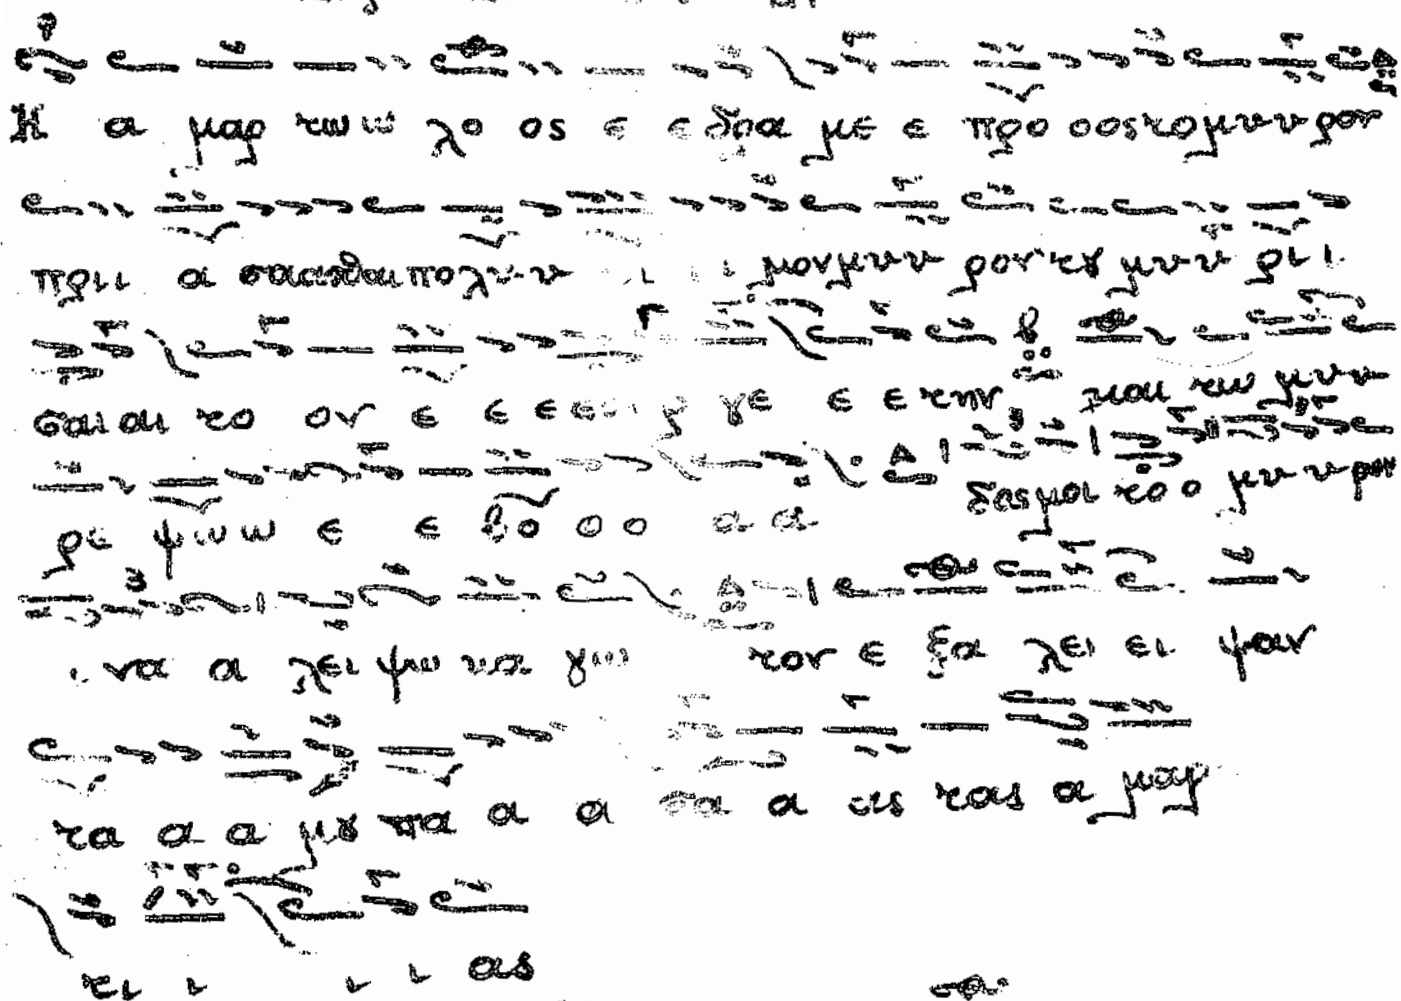 Η α μαρ τω ω λο ος ε ε δρα με ε προ οος το μυ υ υ ρον
πρι ι α σα α σθαι πο λυ υ ι ι ι μον μυ υ υ ρον τȣ μυ υ υ ρι ι
σαι αι το ον ε ε ε ε ε ερ γε ε ε την και τω μυ υ
ρε ψω ω ε ε βο ο ο α α δος μοι το ο μυ υ ρον
ι να α λει ψω κα γω τον ε ξα λει ει ψαν
τα α α μȣ πα α α σα α ας τας α μαρ
τι ι ι ι ας